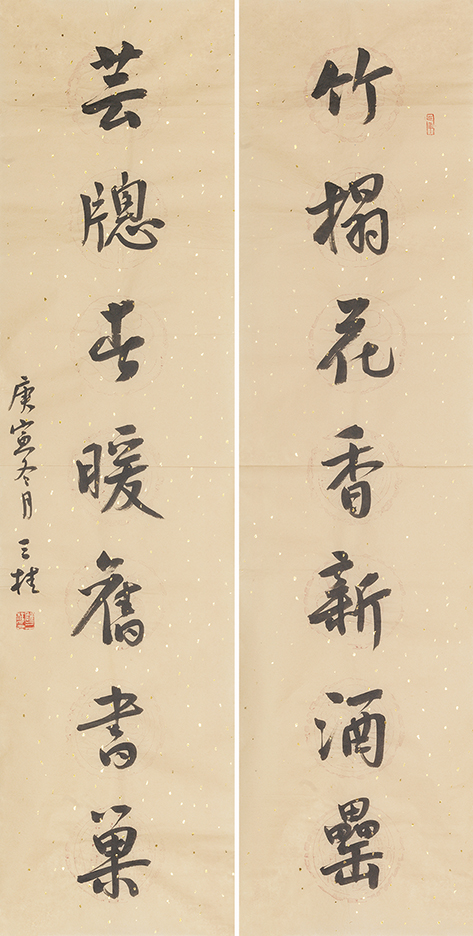 竹榻花香新酒罍
芸牕春暖舊書巢
庚寅冬月 三桂